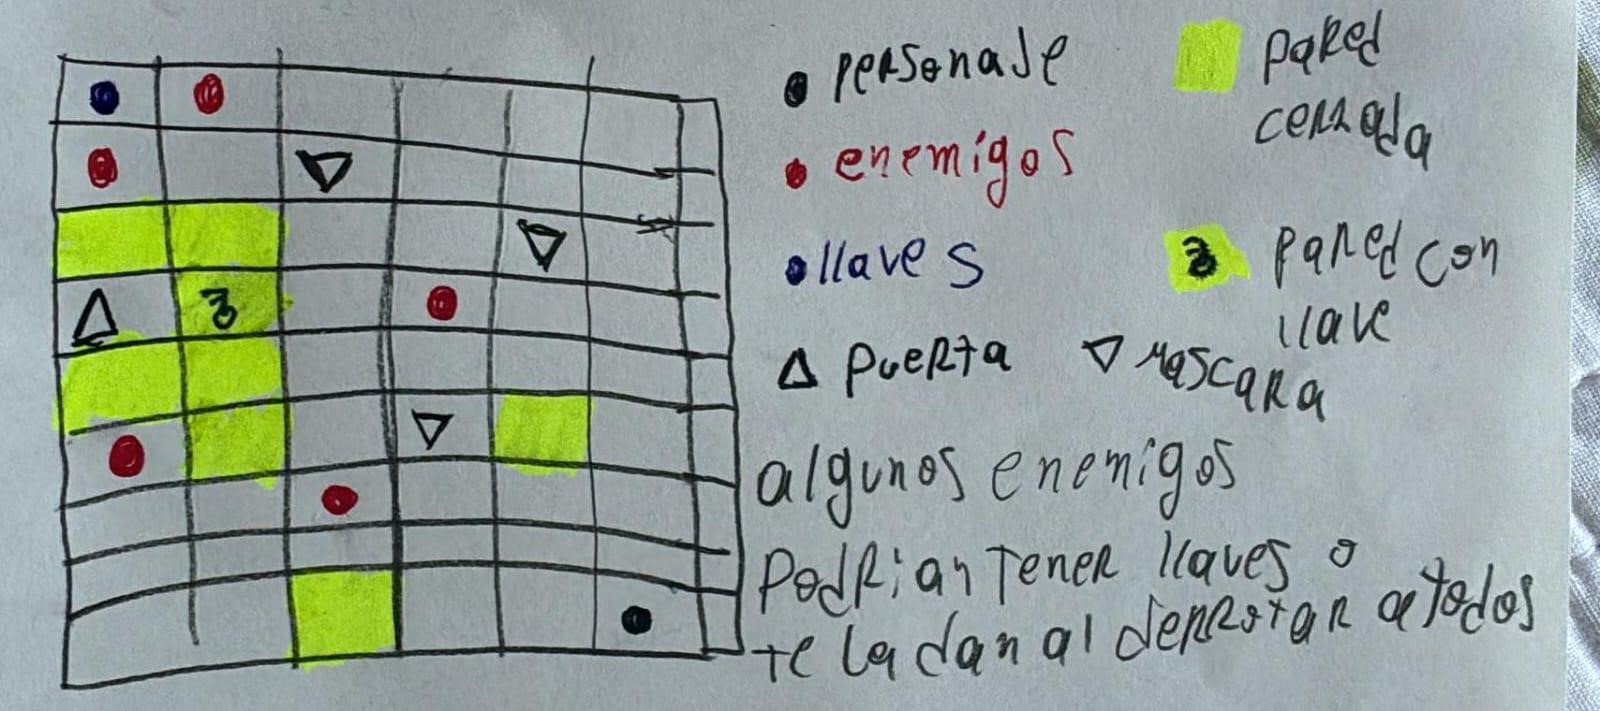 personaje
enemigos
llaves
puerta
pared
cerrada
3
3
pared con
llave
mascara
algunos enemigos
podrian tener llaves o
te la dan al derrotar a todos